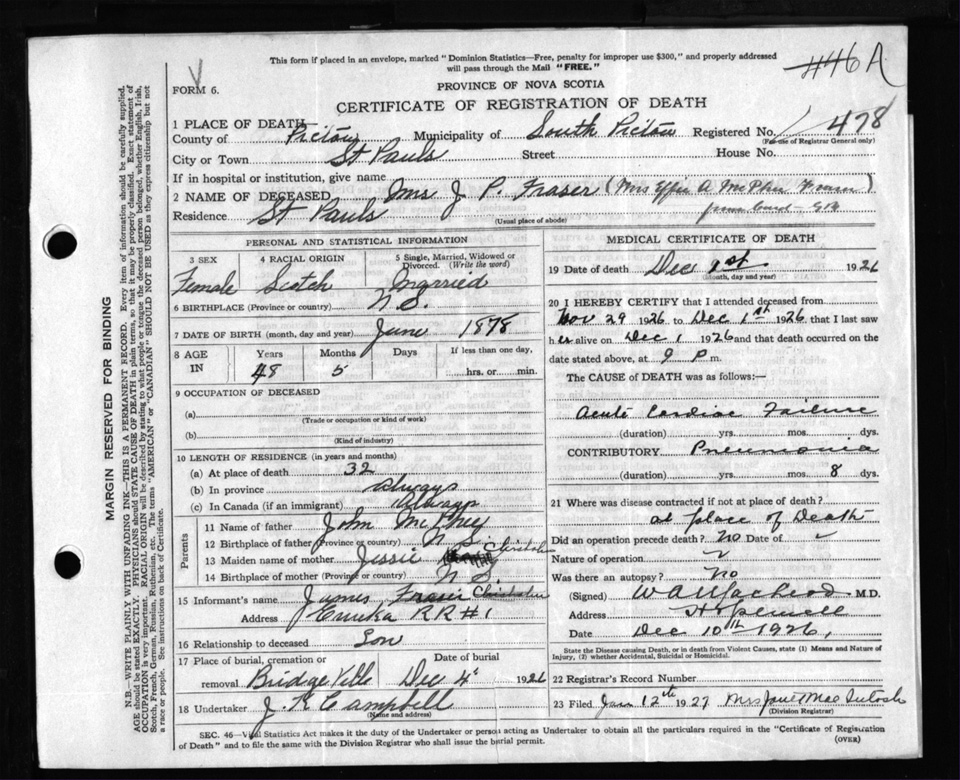 This form if placed in an envelope, marked "Dominion Statistics—Free, penalty for improper use $300," and properly addressed
will pass through the Mail "FREE."
446A
FORM 6.
PROVINCE OF NOVA SCOTIA
CERTIFICATE OF REGISTRATION OF DEATH
1 PLACE OF DEATH
County of Pictou Municipality of South Pictou Registered No. 478
(For use of Registrar General only)
City or Town St Pauls Street House No.
If in hospital or institution, give name
2 NAME OF DECEASED Mrs J. P. Fraser (Mrs Effie A McPhee Fraser)
from card
Residence St Pauls
(Usual place of abode)
MARGIN RESERVED FOR BINDING
N.B.—WRITE PLAINLY WITH UNFADING INK—THIS IS A PERMANENT RECORD. Every item of information should be carefully supplied.
AGE should be stated EXACTLY. PHYSICIANS should STATE CAUSE OF DEATH in plain terms, so that it may be properly classified. Exact statement of
OCCUPATION is very important. RACIAL ORIGIN will be described by stating to what people or tongue the deceased person belonged, whether English, Irish,
Scotch, French, German, Russian, Ruthenian, etc. The terms "AMERICAN" or "CANADIAN" SHOULD NOT BE USED as they express citizenship but not
a race or people. See instructions on back of Certificate.
PERSONAL AND STATISTICAL INFORMATION
3 SEX
Female
4 RACIAL ORIGIN
Scotch
5 Single, Married, Widowed or
Divorced. (Write the word)
Married
6 BIRTHPLACE (Province or country) N.S.
7 DATE OF BIRTH (month, day and year) June 1878
8 AGE
IN
Years Months Days If less than one day,
48 5 hrs. or min.
9 OCCUPATION OF DECEASED
(a)
(Trade or occupation or kind of work)
(b)
(Kind of industry)
10 LENGTH OF RESIDENCE (in years and months)
(a) At place of death 32
(b) In province always
(c) In Canada (if an immigrant) Always
Parents
11 Name of father John McPhey
12 Birthplace of father (Province or country) N.S.
13 Maiden name of mother Jessie Chisholm
14 Birthplace of mother (Province or country) N S
15 Informant's name James Fraser Chisholm
Address Eureka RR #1
16 Relationship to deceased Son
17 Place of burial, cremation or Date of burial
removal Bridgeville Dec 4 1926
18 Undertaker J. R Campbell
(Name and address)
MEDICAL CERTIFICATE OF DEATH
19 Date of death Dec 1st 1926
(Month, day and year)
20 I HEREBY CERTIFY that I attended deceased from
Nov 29 1926 to Dec 1st 1926 that I last saw
her alive on Dec 1 1926 and that death occurred on the
date stated above, at 9 p m.
The CAUSE of DEATH was as follows:—
Acute Cardiac Failure
(duration) yrs. mos. dys.
CONTRIBUTORY Pneumonia
(duration) yrs. mos. 8 dys.
21 Where was disease contracted if not at place of death?
at place of Death
Did an operation precede death? No Date of
Nature of operation
Was there an autopsy? No
(Signed) W A MacLeod M.D.
Address Hopewell
Date Dec 10th 1926,
State the Disease causing Death, or in death from Violent Causes, state (1) Means and Nature of
Injury, (2) whether Accidental, Suicidal or Homicidal.
22 Registrar's Record Number
23 Filed Jan 12th 1927 Mrs Jane MacIntosh
(Division Registrar)
SEC. 46—Vital Statistics Act makes it the duty of the Undertaker or person acting as Undertaker to obtain all the particulars required in the "Certificate of Registration
of Death" and to file the same with the Division Registrar who shall issue the burial permit.
(OVER)